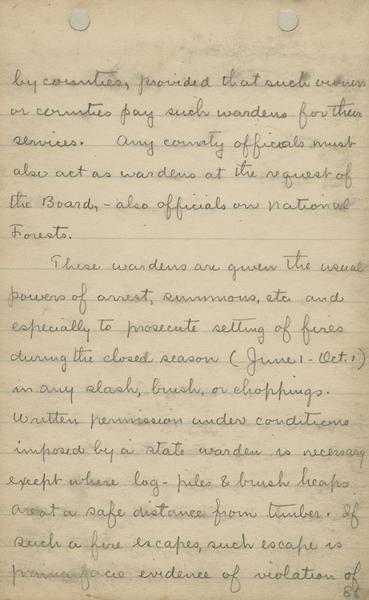 by counties, provided that such owners
or counties pay such wardens for their
services. Any county officials must
also act as wardens at the request of
the Board, - also officials on National
Forests.
These wardens are given the usual
powers of arrest, summons, etc. and
especially to prosecute setting of fires
during the closed season (June 1 - Oct. 1)
in any slash, brush, or choppings.
Written permission under conditions
imposed by a state warden is necessary
except where log-piles & brush heaps
are at a safe distance from timber. If
such a fire escapes, such escape is
prima facie evidence of violation of